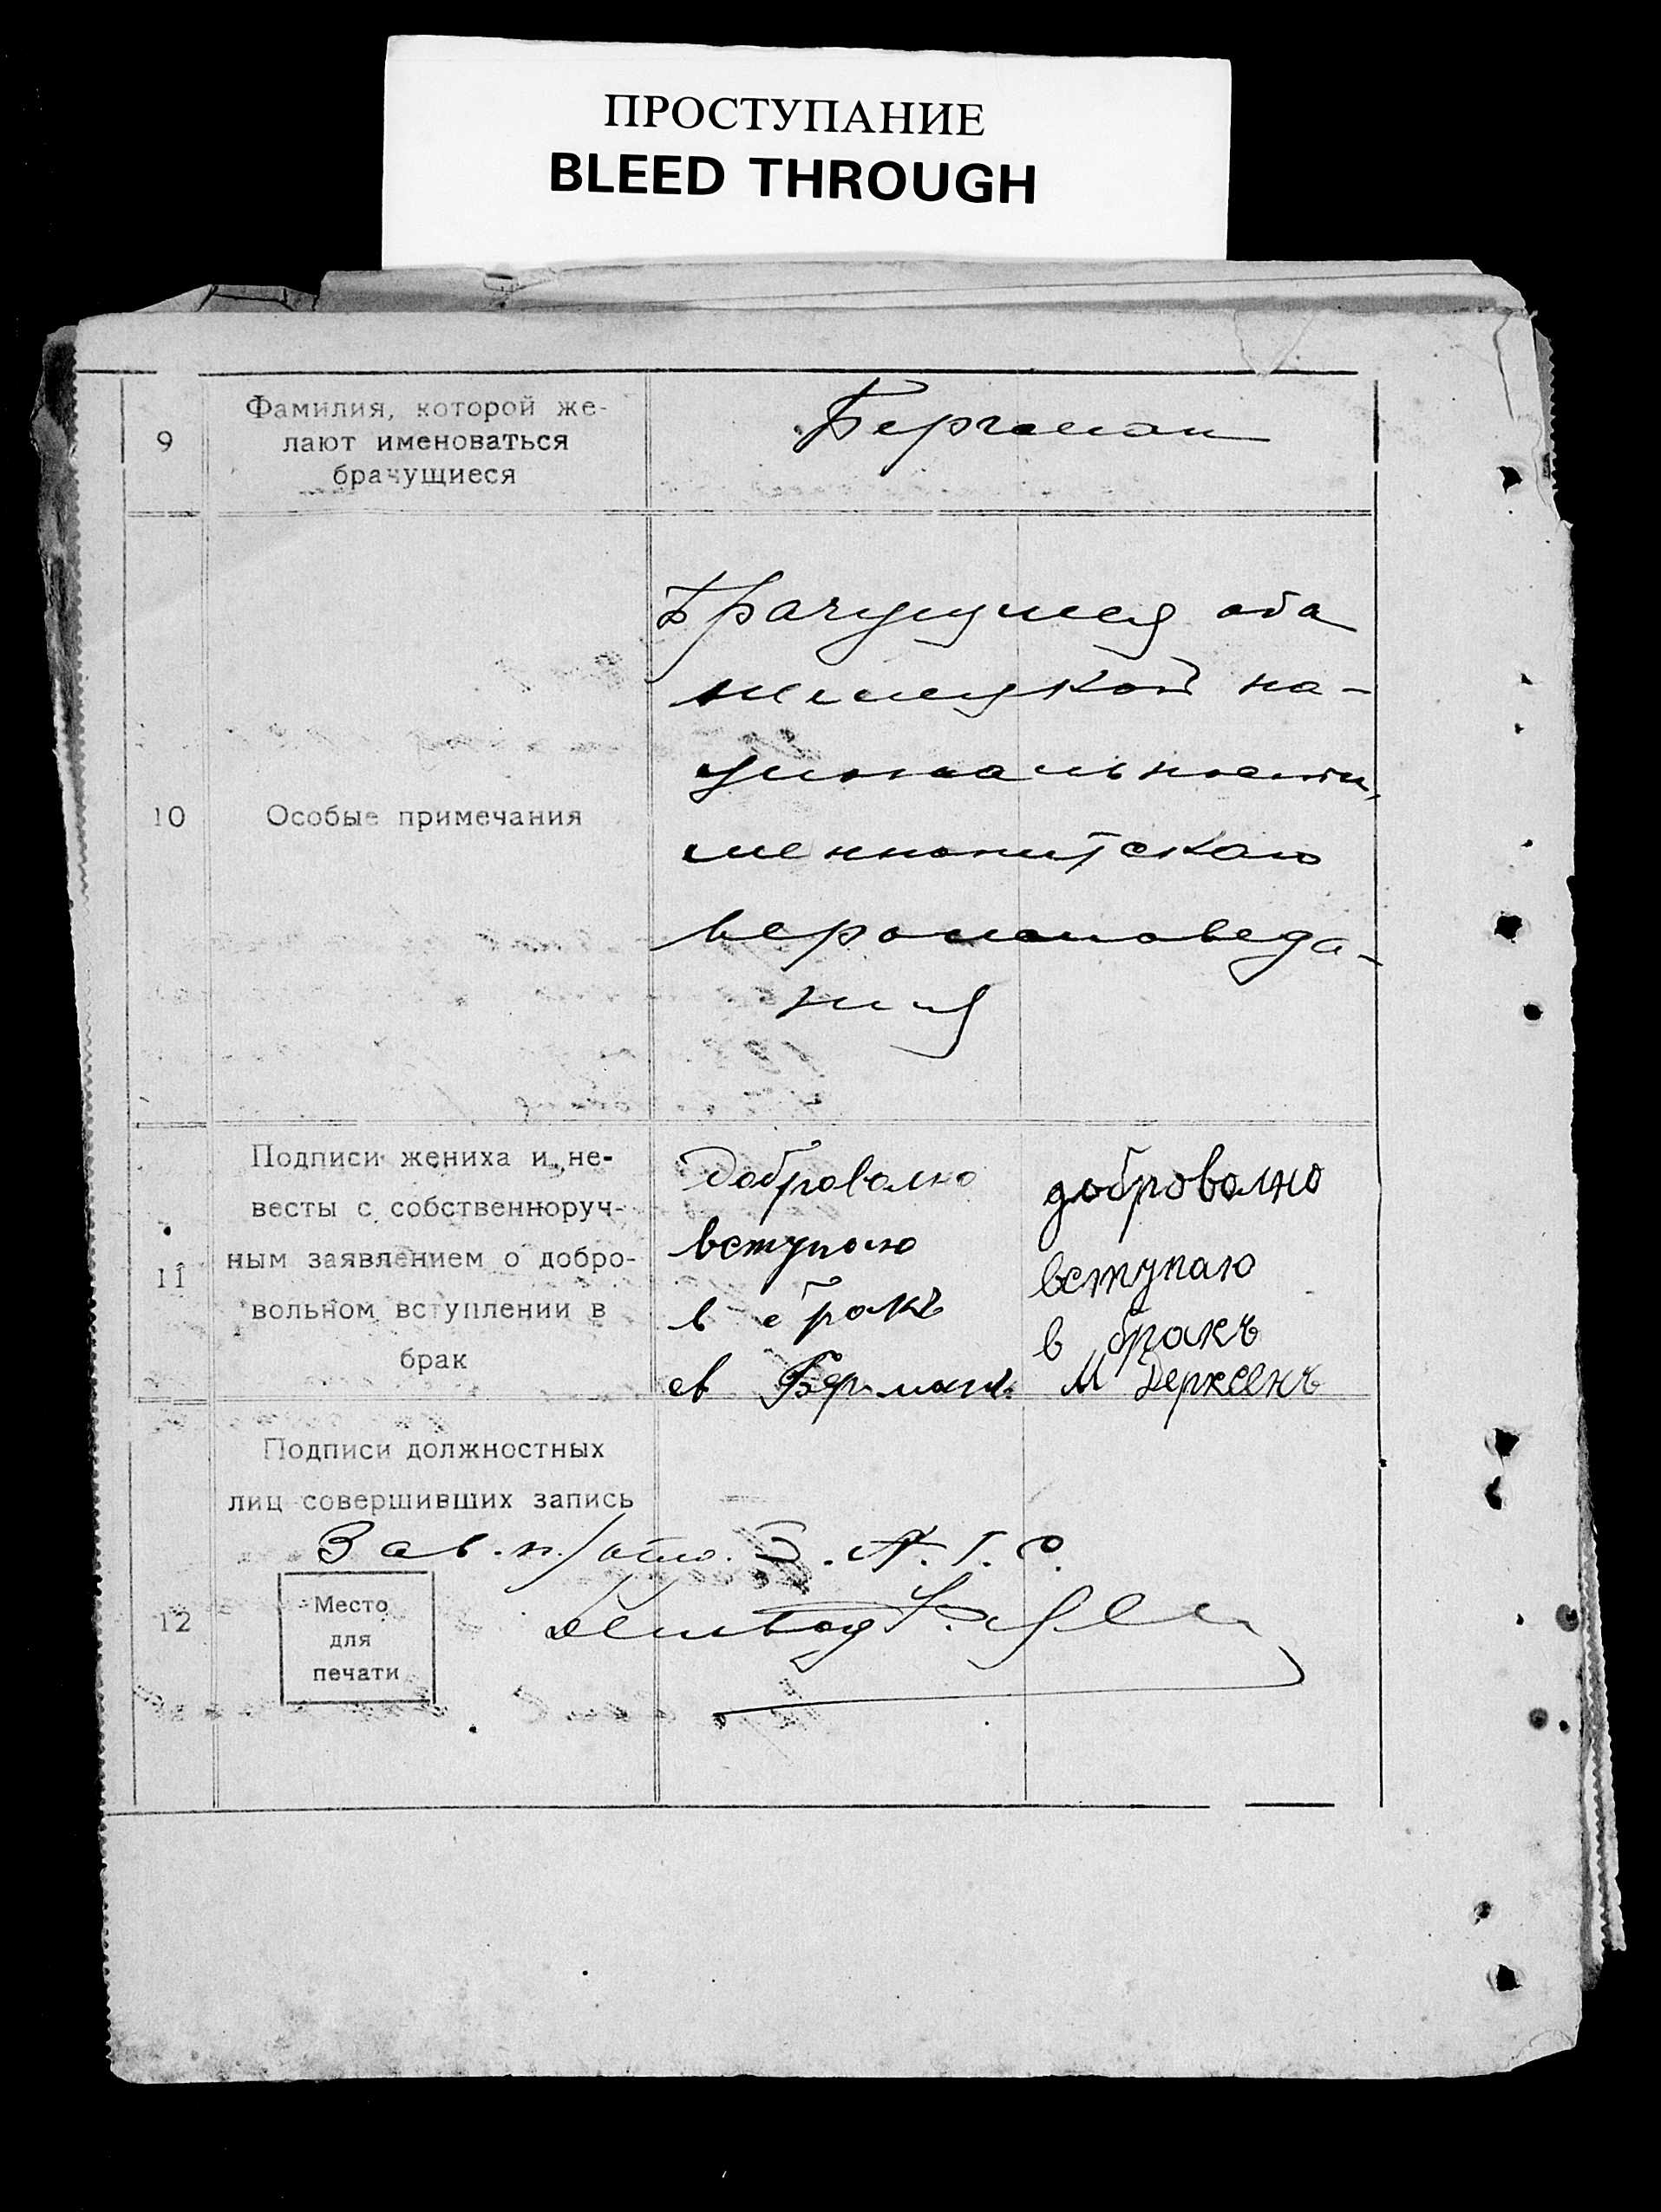 ПРОСТУПАНИЕ
BLEED THROUGH
9
Фамилия, которой же-
лают именоваться
брачущиеся
Бергман
10
Особые примечания
Брачущиеся оба
немецкой на-
циональности,
меннонитского
вероисповеда-
ния
11
Подписи жениха и не-
весты с собственноруч-
ным заявлением о добро-
вольном вступлении в
брак
Доброволно
вступаю
в бракъ
Бергманъ
доброволно
вступаю
в бракъ
М Дерксенъ
12
Подписи должностных
лиц совершивших запись
Зав. п/отд. З. А. Г. С.
Место
для
печати